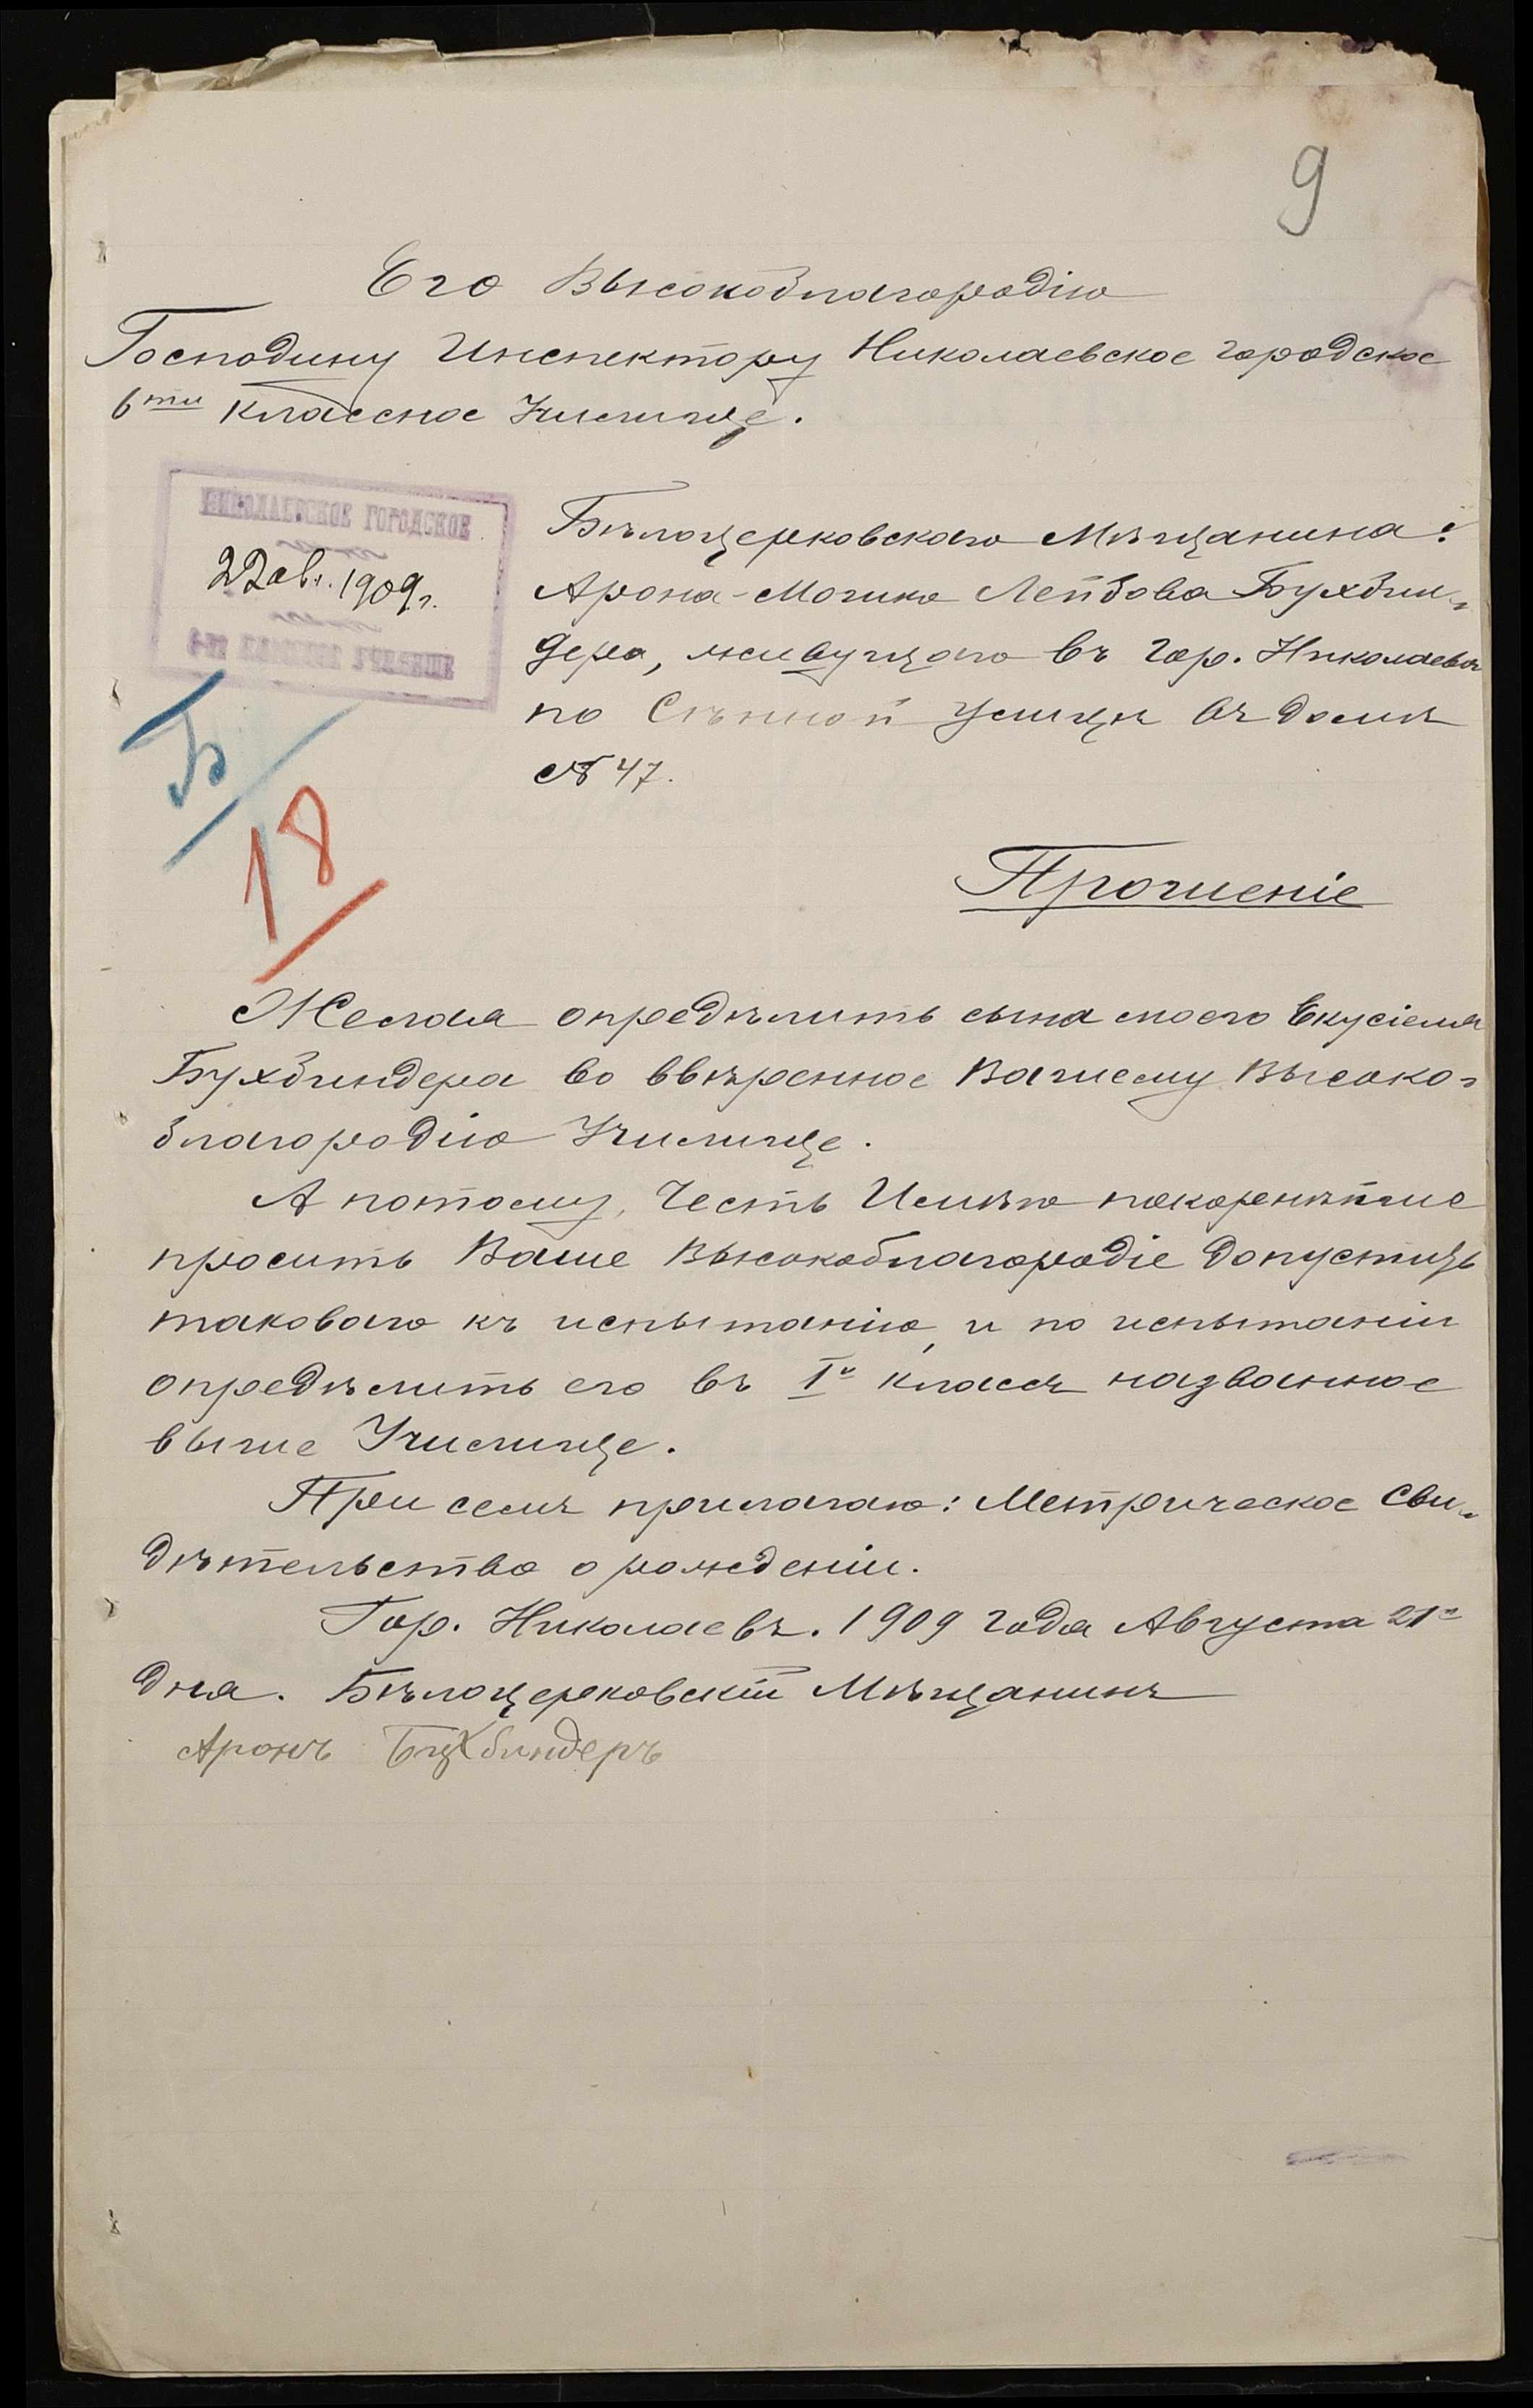 9
Его Высокоблагородію
Господину Инспектору Николаевское городское
6ти классное Училище.
НИКОЛАЕВСКОЕ ГОРОДСКОЕ
22 авг. 1909 г.
6-ТИ КЛАССНОЕ УЧИЛИЩЕ
Бѣлоцерковскаго Мѣщанина:
Арона-Мошко Лейбова Бухбин-
дера, живущаго въ гор. Николаевѣ
по Сѣнной Улицѣ въ домѣ
№ 47.
Б
18
Прошеніе
Желая опредѣлить сына моего Екусіеля
Бухбиндера во ввѣренное Вашему Высоко-
благородію Училище.
А потому, Честь Имѣю покорнѣйше
просить Ваше Высокоблагородіе допустить
таковаго къ испытанію, и по испытаніи
опредѣлить его въ Iй классъ названное
выше Училище.
При семъ прилагаю: Метрическое Сви-
дѣтельство о рожденіи.
Гор. Николаевъ. 1909 года Августа 21го
дня. Бѣлоцерковскій Мѣщанинъ
Аронъ Бухбиндеръ